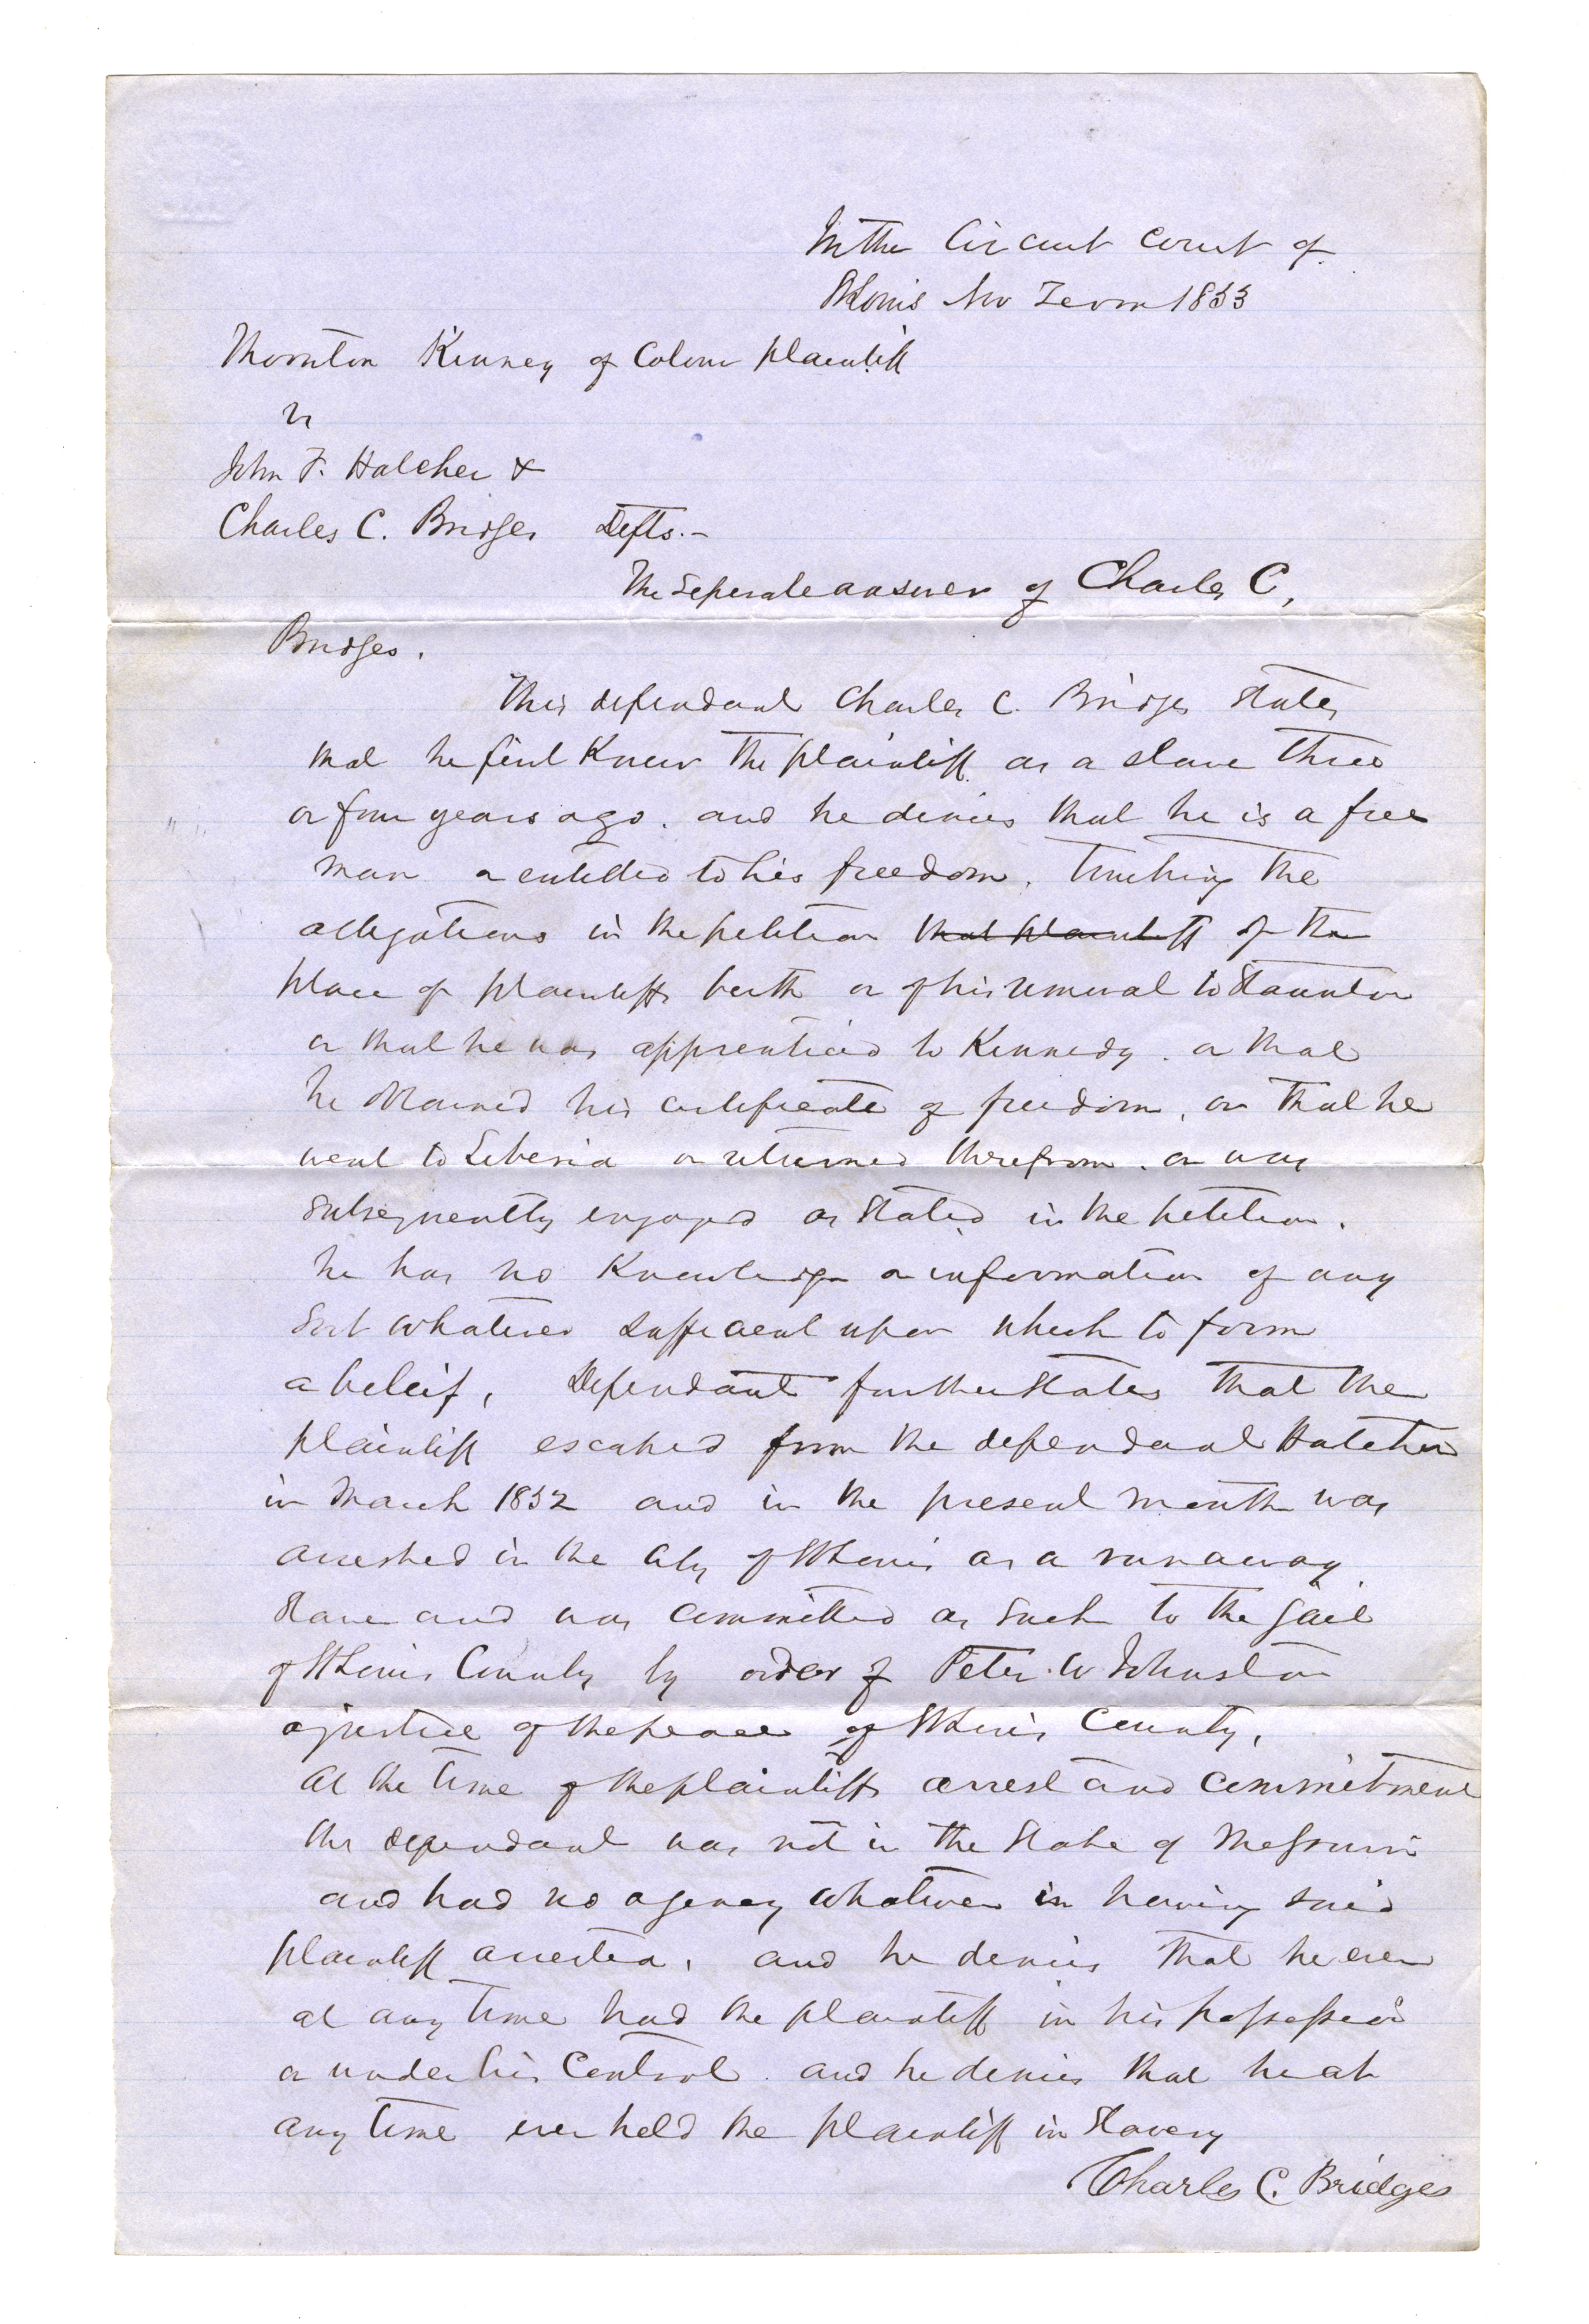 In the Circuit Court of
St Louis Nov Term 1853
Thornton Kinney of Colour plaintiff
vs
John F. Hatcher &
Charles C. Bridges Defts.-
The Seperate answer of Charles C,
Bridges.
This defendant Charles C. Bridges States
that he first Knew the plaintiff as a slave three
or four years ago. and he denies that he is a free
man or entitled to his freedom. Touching the
allegations in the petition that plaintiff of the
place of plaintiffs birth or of his removal to Staunton
or that he was apprenticed to Kennedy. or that
he obtained his certificate of freedom, or that he
went to Liberia or returned therefrom. or was
subsequently engaged as Stated in the petition.
he has no Knowledge or information of any
Sort whatever sufficient upon which to form
a beleif, Defendant further States that the
plaintiff escaped from the defendant Hatcher
in March 1852 and in the present month was
arrested in the City of St Louis as a runaway
Slave and was committed as such to the Jail
of St Louis County by order of Peter W Johnston
a justice of the peace of St Louis County,
At the time of the plaintiffs arrest and commitment
this defendant was not in the State of Missouri
and had no agency whatever in having said
plaintiff arrested, and he denies that he ever
at any time had the plaintiff in his possession
or under his Control. and he denies that he at
any time ever held the plaintiff in Slavery
Charles C. Bridges